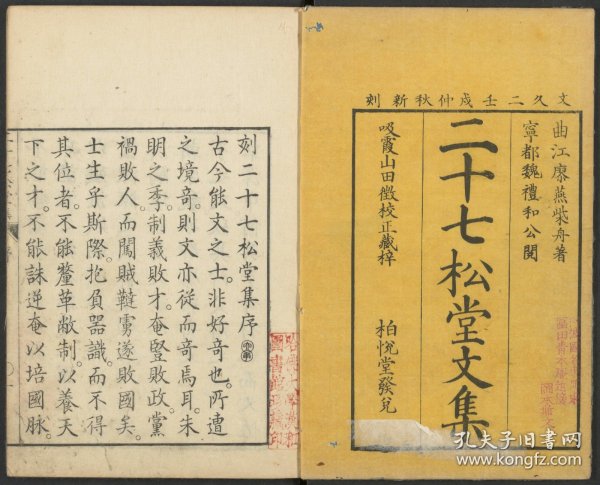 文久二壬戌仲秋新刻
曲江廖燕柴舟著
寧都魏禮和公閱
二十七松堂文集
吸霞山田徵校正藏梓
柏悅堂發兌
刻二十七松堂集序
古今能文之士。非好奇也。所遭
之境奇。則文亦從而奇焉耳。朱
明之季。制義敗才。奄豎敗政。黨
禍敗人。而闖賊韃虜遂敗國矣。
士生乎斯際。抱負器識。而不得
其位者。不能釐革敝制。以養天
下之才。不能誅逆奄以培國脉。
孔夫子旧书网
www.kongfz.com